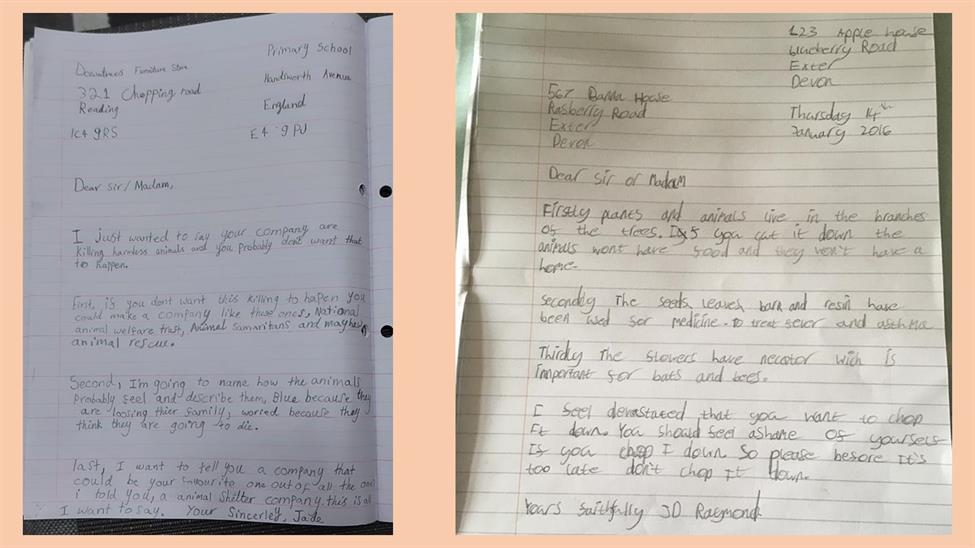 Primary School
Downtrees Furniture Store
Handsworth Avenue
321 Chopping road
England
Reading
IC4 9RS
E4 9PJ
Dear Sir/Madam,
I just wanted to say your company are
killing harmless animals and you probably dont want that
to happen.
First, if you dont want this killing to hapen you
could make a company like these ones, National
animal welfare trust, Animal Samaritans and mayhew
animal rescue.
Second, I'm going to name how the animals
Probably feel and describe them, Blue because they
are loosing thier family, worried because they
think they are going to die.
last, I want to tell you a company that
could be your favourite one out of all the ones
i told you, a animal shelter company, this is all
I want to say. Your Sincerley, Jade
123 Apple house
blueberry Road
Exter
Devon
567 Banna House
Rasberry Road
Exter
Devon
Thursday 14th
January 2016
Dear Sir or Madam
Firstly plants and animals live in the branches
of the trees. If you cut it down the
animals wont have food and they won't have a
home.
Secondly The seeds, leaves, bark and resin have
been used for medicine. to treat fever and asthma
Thirdly The flowers have nectar wich is
important for bats and bees.
I feel devastated that you want to chop
It down. You should feel ashame of yourself
If you chop I down So please before It's
too late don't chop It down.
Yours faithfully JD Raymond